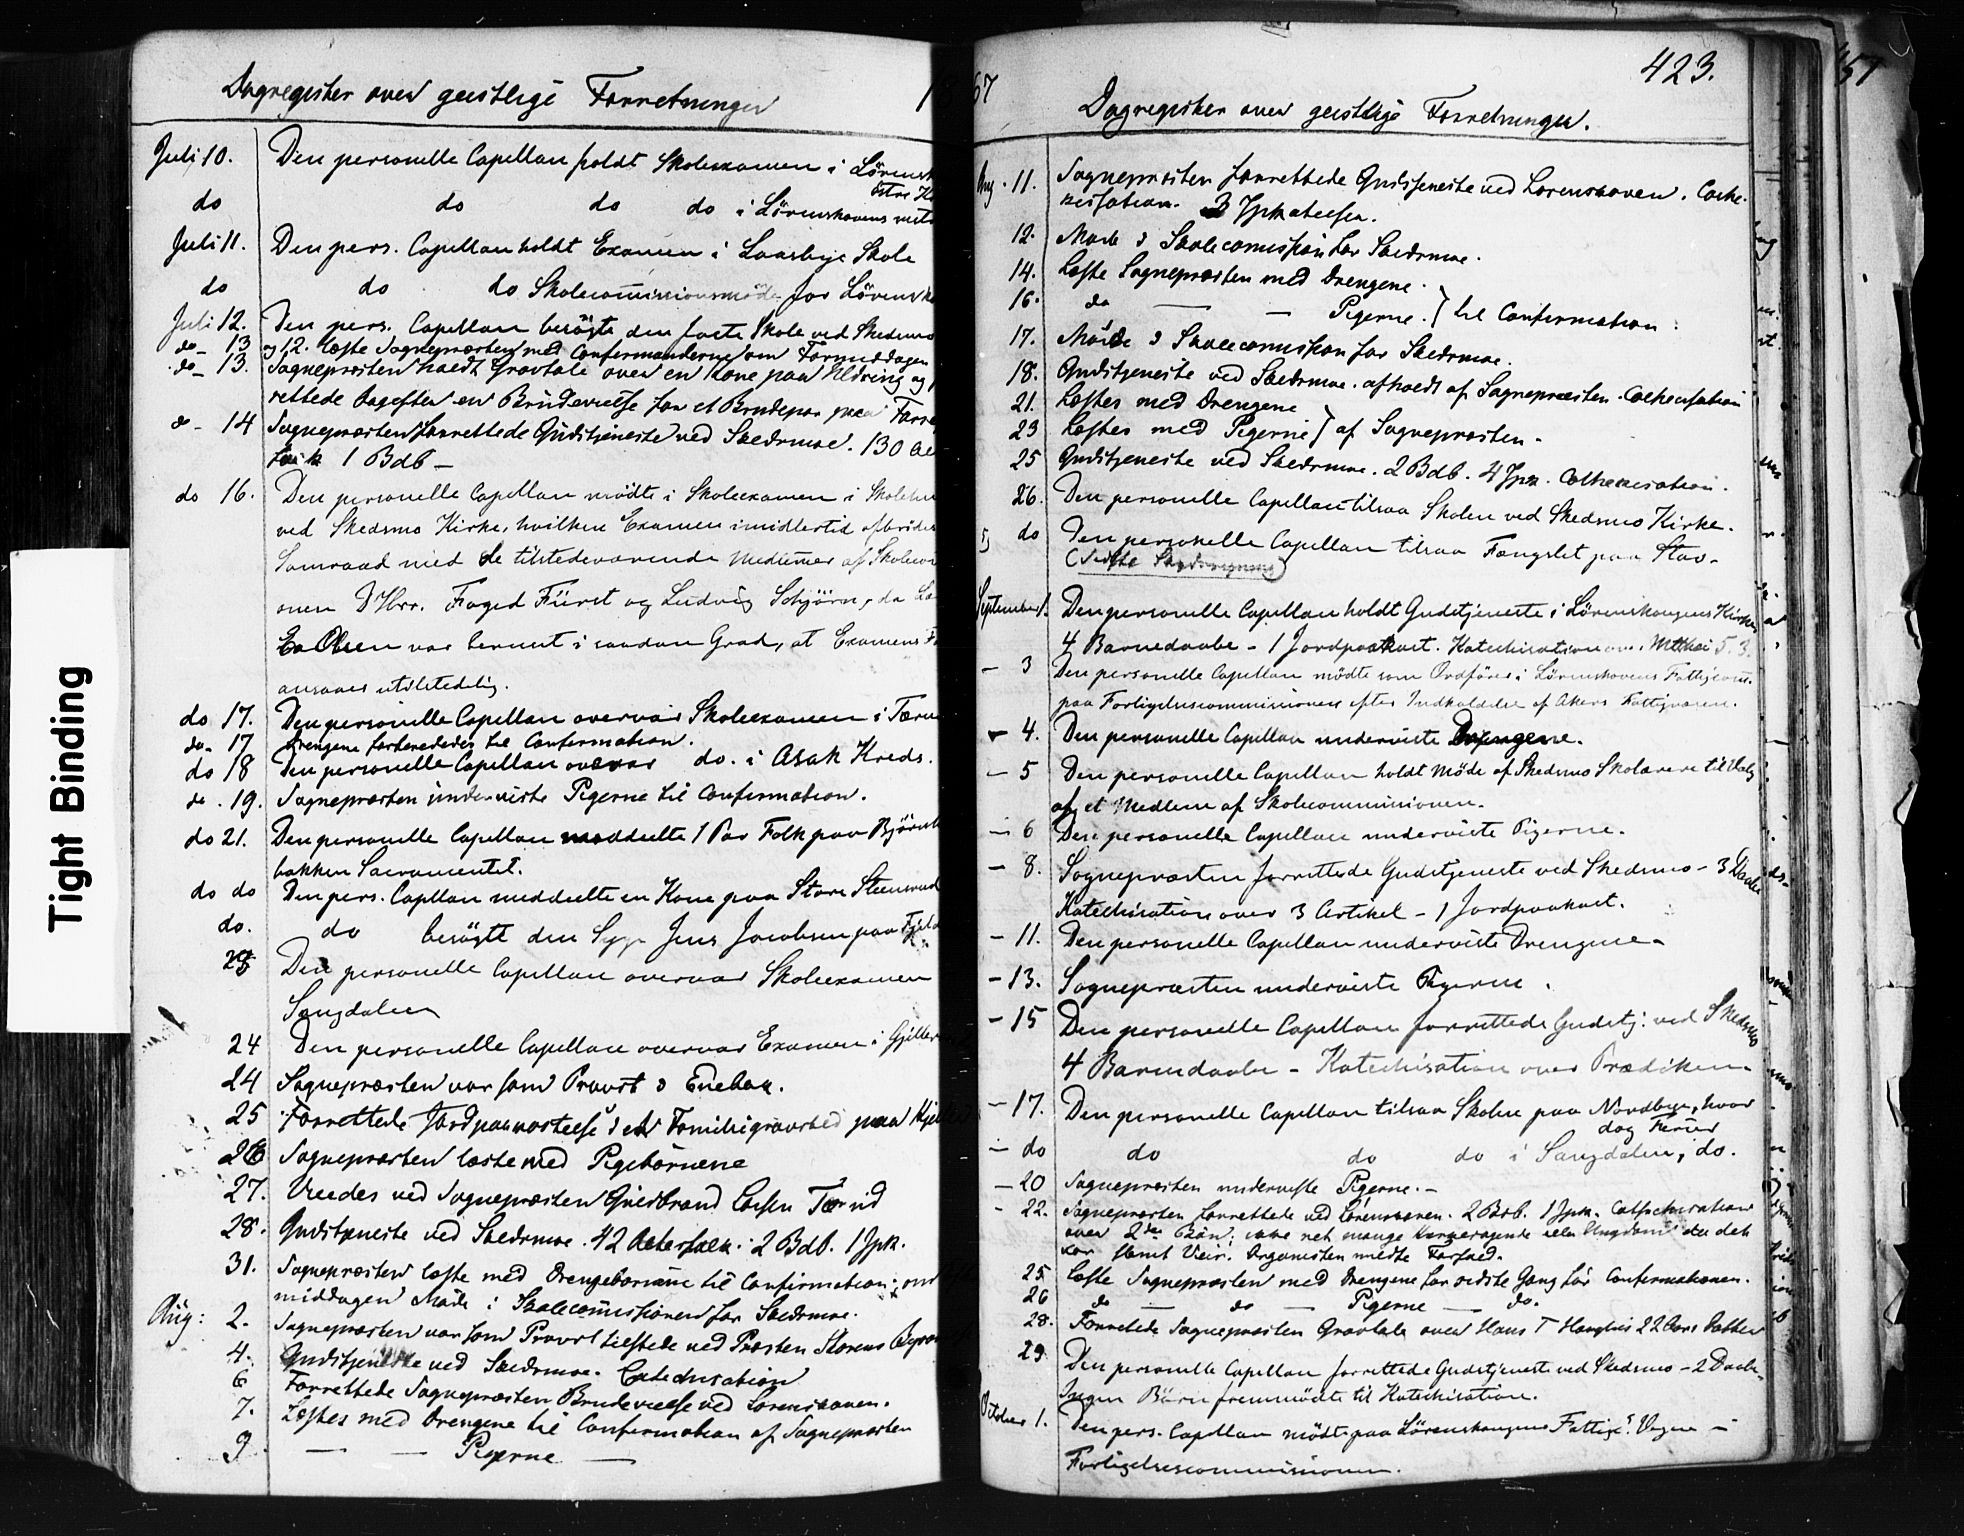 Dagregister over geistlige Forretninger 18
Juli 10. Den personelle Capellan holdt Skoleexamen i Lörensk
östre K
do do do do i Lörenskovens
Juli 11. Den pers. Capellan holdt Examen i Skole
do do do Skolecommissionsmöde for Lörensk
Juli 12. Den pers. Capellan besögte den faste Skole ved Skedsmo
do - 13 og 12. læste Sognepræsten med Confirmanderne om Formiddagen
do - 13. Sognepræsten holdt Gravtale over en Kone paa og
rettede Brudevielse for et Brudepar paa
d - 14 Sognepræsten forrettede Gudstjeneste ved Skedsmoe. 130
1 Bdb -
do 16. Den personelle Capellan mödte i Skoleexamen i
ved Skedsmo Kirke, hvilken Examen imidlertid afbrödes
Samraad med de tilstedeværende Medlemer af
onen D'Hrr. Foged Fürst og Ludvig da
Olsen var beruset i saadan Grad, at Examens
ansaaes utilstedelig.
do 17. Den personelle Capellan overvar Skoleexamen i
do - 17 Drengene forberededes til Confirmation.
do 18 Den personelle Capellan overvar do. i Asak Kreds.
do . 19. Sognepræsten underviste Pigerne til Confirmation.
do 21. Den personelle Capellan meddeelte 1 Par Folk paa
bakken Sacramentet.
do do Den pers. Capellan meddeelte en Kone paa Store
do. do besögte den Syge Jens Jacobsen paa
23 Den personelle Capellan overvar Skoleexamen
Sangdalen
24 Den personelle Capellan overvar Examen i
24 Sognepræsten var som Provst i Enebak.
25 Forrettede Jordpaakastelse i et Familiegravsted paa
26 Sognepræsten læste med Pigebörnene
27. Viedes ved Sognepræsten
28. Gudstjeneste ved Skedsmoe. 42 Altersfolk. 2 Bdb. 1 Jpk.
31. Sognepræsten læste med Drengebörnene til Confirmation; om
middagen Möde i Skolecommissionen for Skedsmoe.
Aug: 2. Sognepræsten var som Provst tilstede ved Præsten
4. Gudstjeneste ved Skedsmoe. Catechisation
6 Forrettede Sognepræsten Brudevielse ved Lörenskoven.
7. Læstes med Drengene til Confirmation af Sognepræsten
9. — — Pigerne —
67 423.
Dagregister over geistlige Forretninger.
Aug. 11. Sognepræsten forrettede Gudstjeneste ved Lørenskoven. Cate-
kisation. 3 Jpkastelser.
12. Møde i Skolecommission for Skedsmoe.
14. Læste Sognepræsten med Drengene.
16. do — — Pigerne. } til Confirmation.
17. Møde i Skolecommission for Skedsmoe.
18. Gudstjeneste ved Skedsmoe. afholdt af Sognepræsten. Catechisation
21. Læstes med Drengene
23 Læstes med Pigerne } af Sognepræsten.
25 Gudstjeneste ved Skedsmoe. 2 Bdb. 4 Jpk. Cathekisation.
26. Den personelle Capellan tilsaa Skolen ved Skedsmo Kirke.
do Den personelle Capellan tilsaa Fængslet paa Stav-
September 1. Den personelle Capellan holdt Gudstjeneste i Lörenskougens Kirke
4 Barnedaabe - 1 Jordpaakast. Katechisation over Mtthæi 5. 3.
- 3 Den personelle Capellan mödte som Ordförer i Lörenskovens Fattigcom.
paa Forligelsescommissionen efter Indkaldelse af Akers Fattigvæsen.
- 4. Den personelle Capellan underviste Drengene.
- 5 Den personelle Capellan holdt Möde af Skedsmo Skolærere til Valg
af et Medlem af Skolecommissionen.
- 6 Den personelle Capellan underviste Pigerne.
- 8. Sognepræsten forrettede Gudstjeneste ved Skedsmo - 3 Daabe
Katechisation over 3 Artikel - 1 Jordpaakast.
- 11. Den personelle Capellan underviste Drengene
- 13. Sognepræsten underviste Pigerne.
- 15 Den personelle Capellan forrettede Gudstj. ved Skedsmo
4 Barnedaabe - Katechisation over Prædiken.
- 17. Den personelle Capellan tilsaa Skolen paa Nordbye, hvor
dog Ferier
- do do do do i Sangdalen, do.
- 20 Sognepræsten underviste Pigerne.-
- 22. Sognepræsten forrettede ved Lörenskoven. 2 Bdb. 1 Jpk. Catechisation
over 2den Bön; ikke ret mange eller Ungdom da det
var slemt Veir. Organisten mødte Forfald.
25 Læste Sognepræsten med Drengene for sidste Gang før Confirmationen.
26 do — do — Pigerne — do.
28. Forrettede Sognepræsten Gravtale over Hans T 22 Aars Datter
29 Den personelle Capellan forrettede Gudstjeneste ved Skedsmo - 2 Daabe
Ingen Börn fremmödte til Katechisation.
October 1. Den pers. Capellan mödte paa Lörenskougens Fattigv. Vegne -
Forligelsescommissionen.
Tight Binding